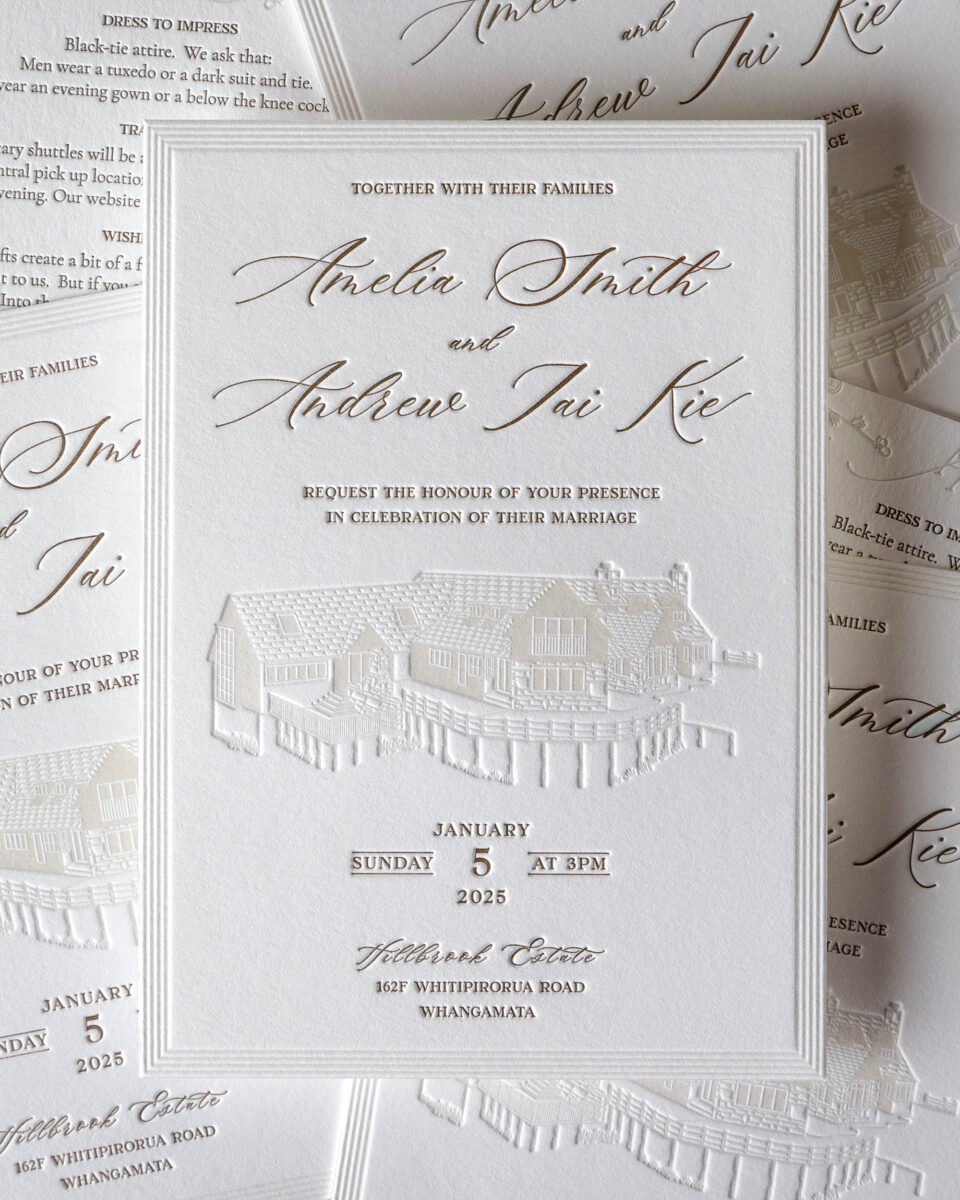 DRESS TO IMPRESS
Black-tie attire. We ask that:
Men wear a tuxedo or a dark suit and tie.
wear an evening gown or a below the knee cock
will be
pick up
evening. Our website
create a bit of a
to us. But if you
Into
and
Jai Kie
Andrew
TOGETHER WITH THEIR FAMILIES
Amelia Smith
and
Andrew Jai Kie
REQUEST THE HONOUR OF YOUR PRESENCE
IN CELEBRATION OF THEIR MARRIAGE
JANUARY
SUNDAY 5 AT 3PM
2025
Hillbrook Estate
162F WHITIPIRORUA ROAD
WHANGAMATA
FAMILIES
Jai
OF YOUR
OF THEIR
JANUARY
5
2025
Hillbrook Estate
162F WHITIPIRORUA ROAD
WHANGAMATA
DRESS TO
Black-tie attire.
Smith
Kie